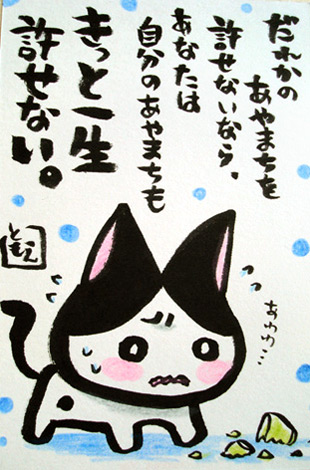 だれかの
あやまちを
許せないなら、
あなたは
自分のあやまちも
きっと一生
許せない。
あわわ…